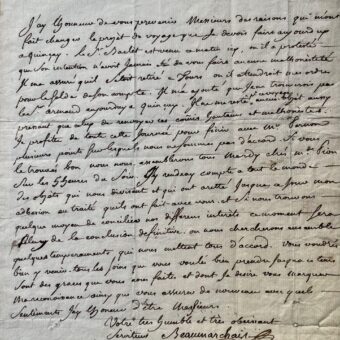 J'ay l'honneur de vous prevenir Messieurs des raisons qui m'ont
fait changer le projet de voyage que je devois faire aujourd'uy
a quinçay. le Sr. est venu ce matin icy, où il a protesté
que Son intention n'avoit Jamais été de vous faire aucune malhonêteté
Il m'a assuré qu'il S'étoit retiré a Tours, où il attendroit mes ordres
pour le Solde de Son compte. Il m'a ajouté que Je ne trouverois pas
le Sr. armand aujourduy a quinçay. Il ne me reste
prenant que de renvoyer
Je profite de toute cette Journée pour finir avec Mr.
plusieurs points sur lesquels nous ne sommes pas d'accord. Si vous
le trouvés bon nous nous assemblerons tous Mardy chés Mr. Pion
Sur les 5 heures du Soir. J'y rendray compte a tout le monde
des objets qui nous divisent et qui ont arretté Jusques a Jour mon
adhesion au traité qu'ils ont fait avec vous. et Si nous trouvons
quelque moyen de concilier nos differens interêts ce moment Sera
celuy de la conclusion definitive. ou nous chercherons ensemble
quelques temperaments, qui nous mettent tous d'accord. Vous voudrés
bien y venir. tous les Soins que vous voulés bien prendre Jusqu'a ce tems
Sont des graces que vous nous faites et dont Je desire vous marquer
Ma reconnoissance ainsy que vous assurer de nouveau
Sentiments J'ay l'honneur d'être Messieurs
Votre très humble et très obeissant
Serviteur Beaumarchais